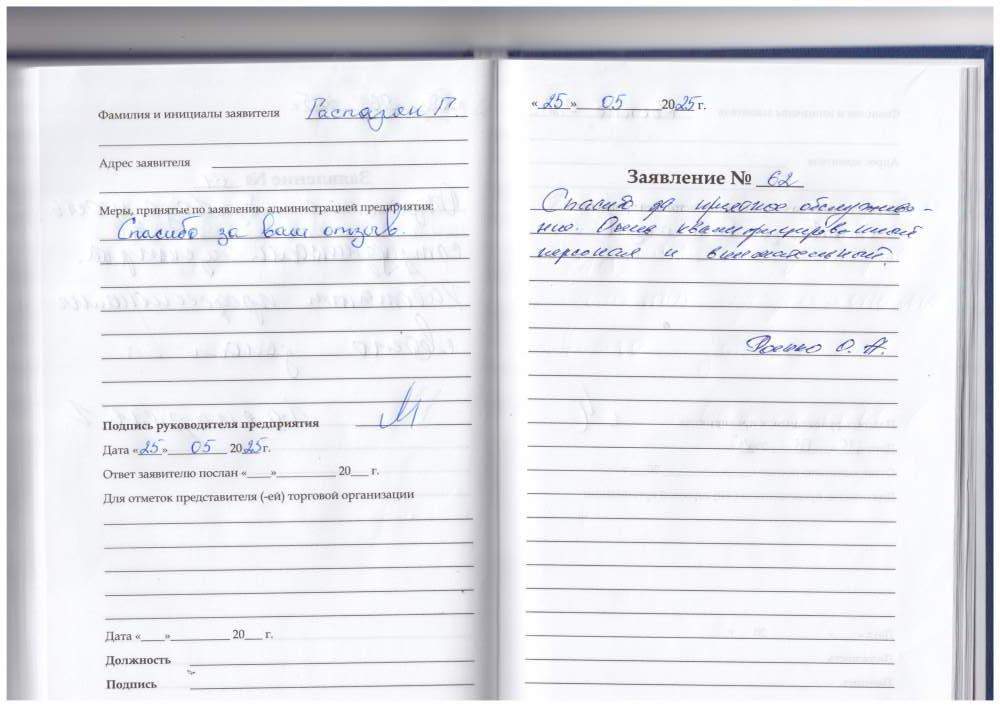 Фамилия и инициалы заявителя Г.
Адрес заявителя
Меры, принятые по заявлению администрацией предприятия:
Спасибо за ваш отзыв.
Подпись руководителя предприятия
Дата «25» 05 2025г.
Ответ заявителю послан «____»__________ 20___ г.
Для отметок представителя (-ей) торговой организации
Дата «____»__________ 20___ г.
Должность
Подпись
«25» 05 2025 г.
Заявление № 62
Спасибо за приятное обслужива-
ние. Очень квалифицированный
персонал и внимательный.
О. А.